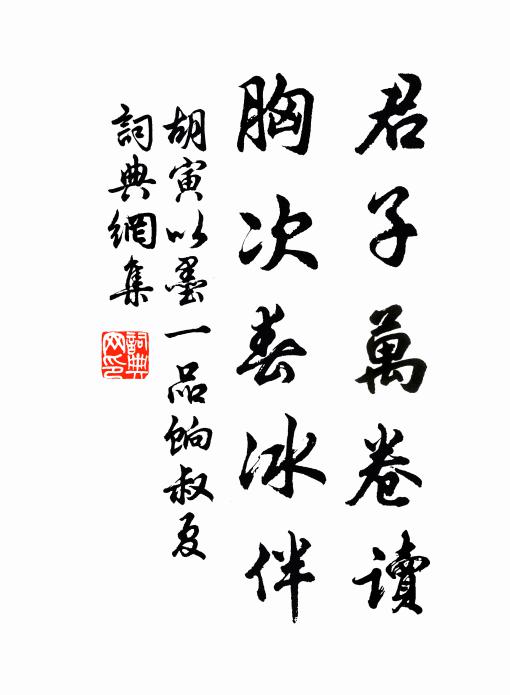 君子萬卷讀
胸次春冰伴
胡寅以墨一品餉叔夏
詞典網集
詞典网印